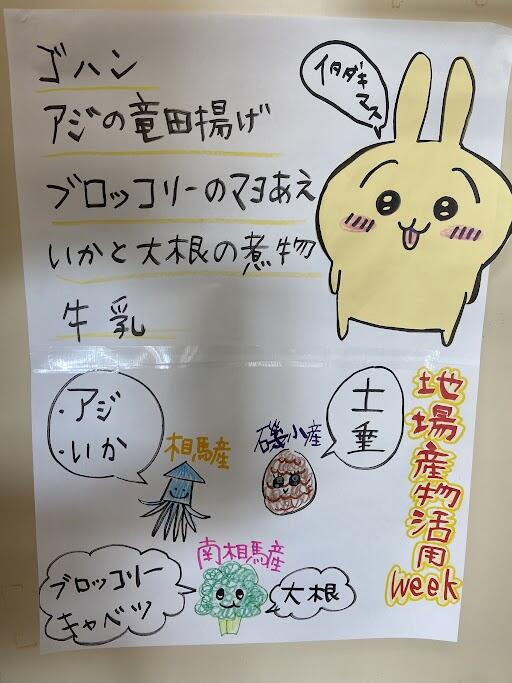 ゴハン
アジの竜田揚げ
ブロッコリーのマヨあえ
いかと大根の煮物
牛乳
イタダキ
マス
・アジ
・いか
相馬産
磯小産
土垂
南相馬産
ブロッコリー
キャベツ
大根
地場産物活用
Week